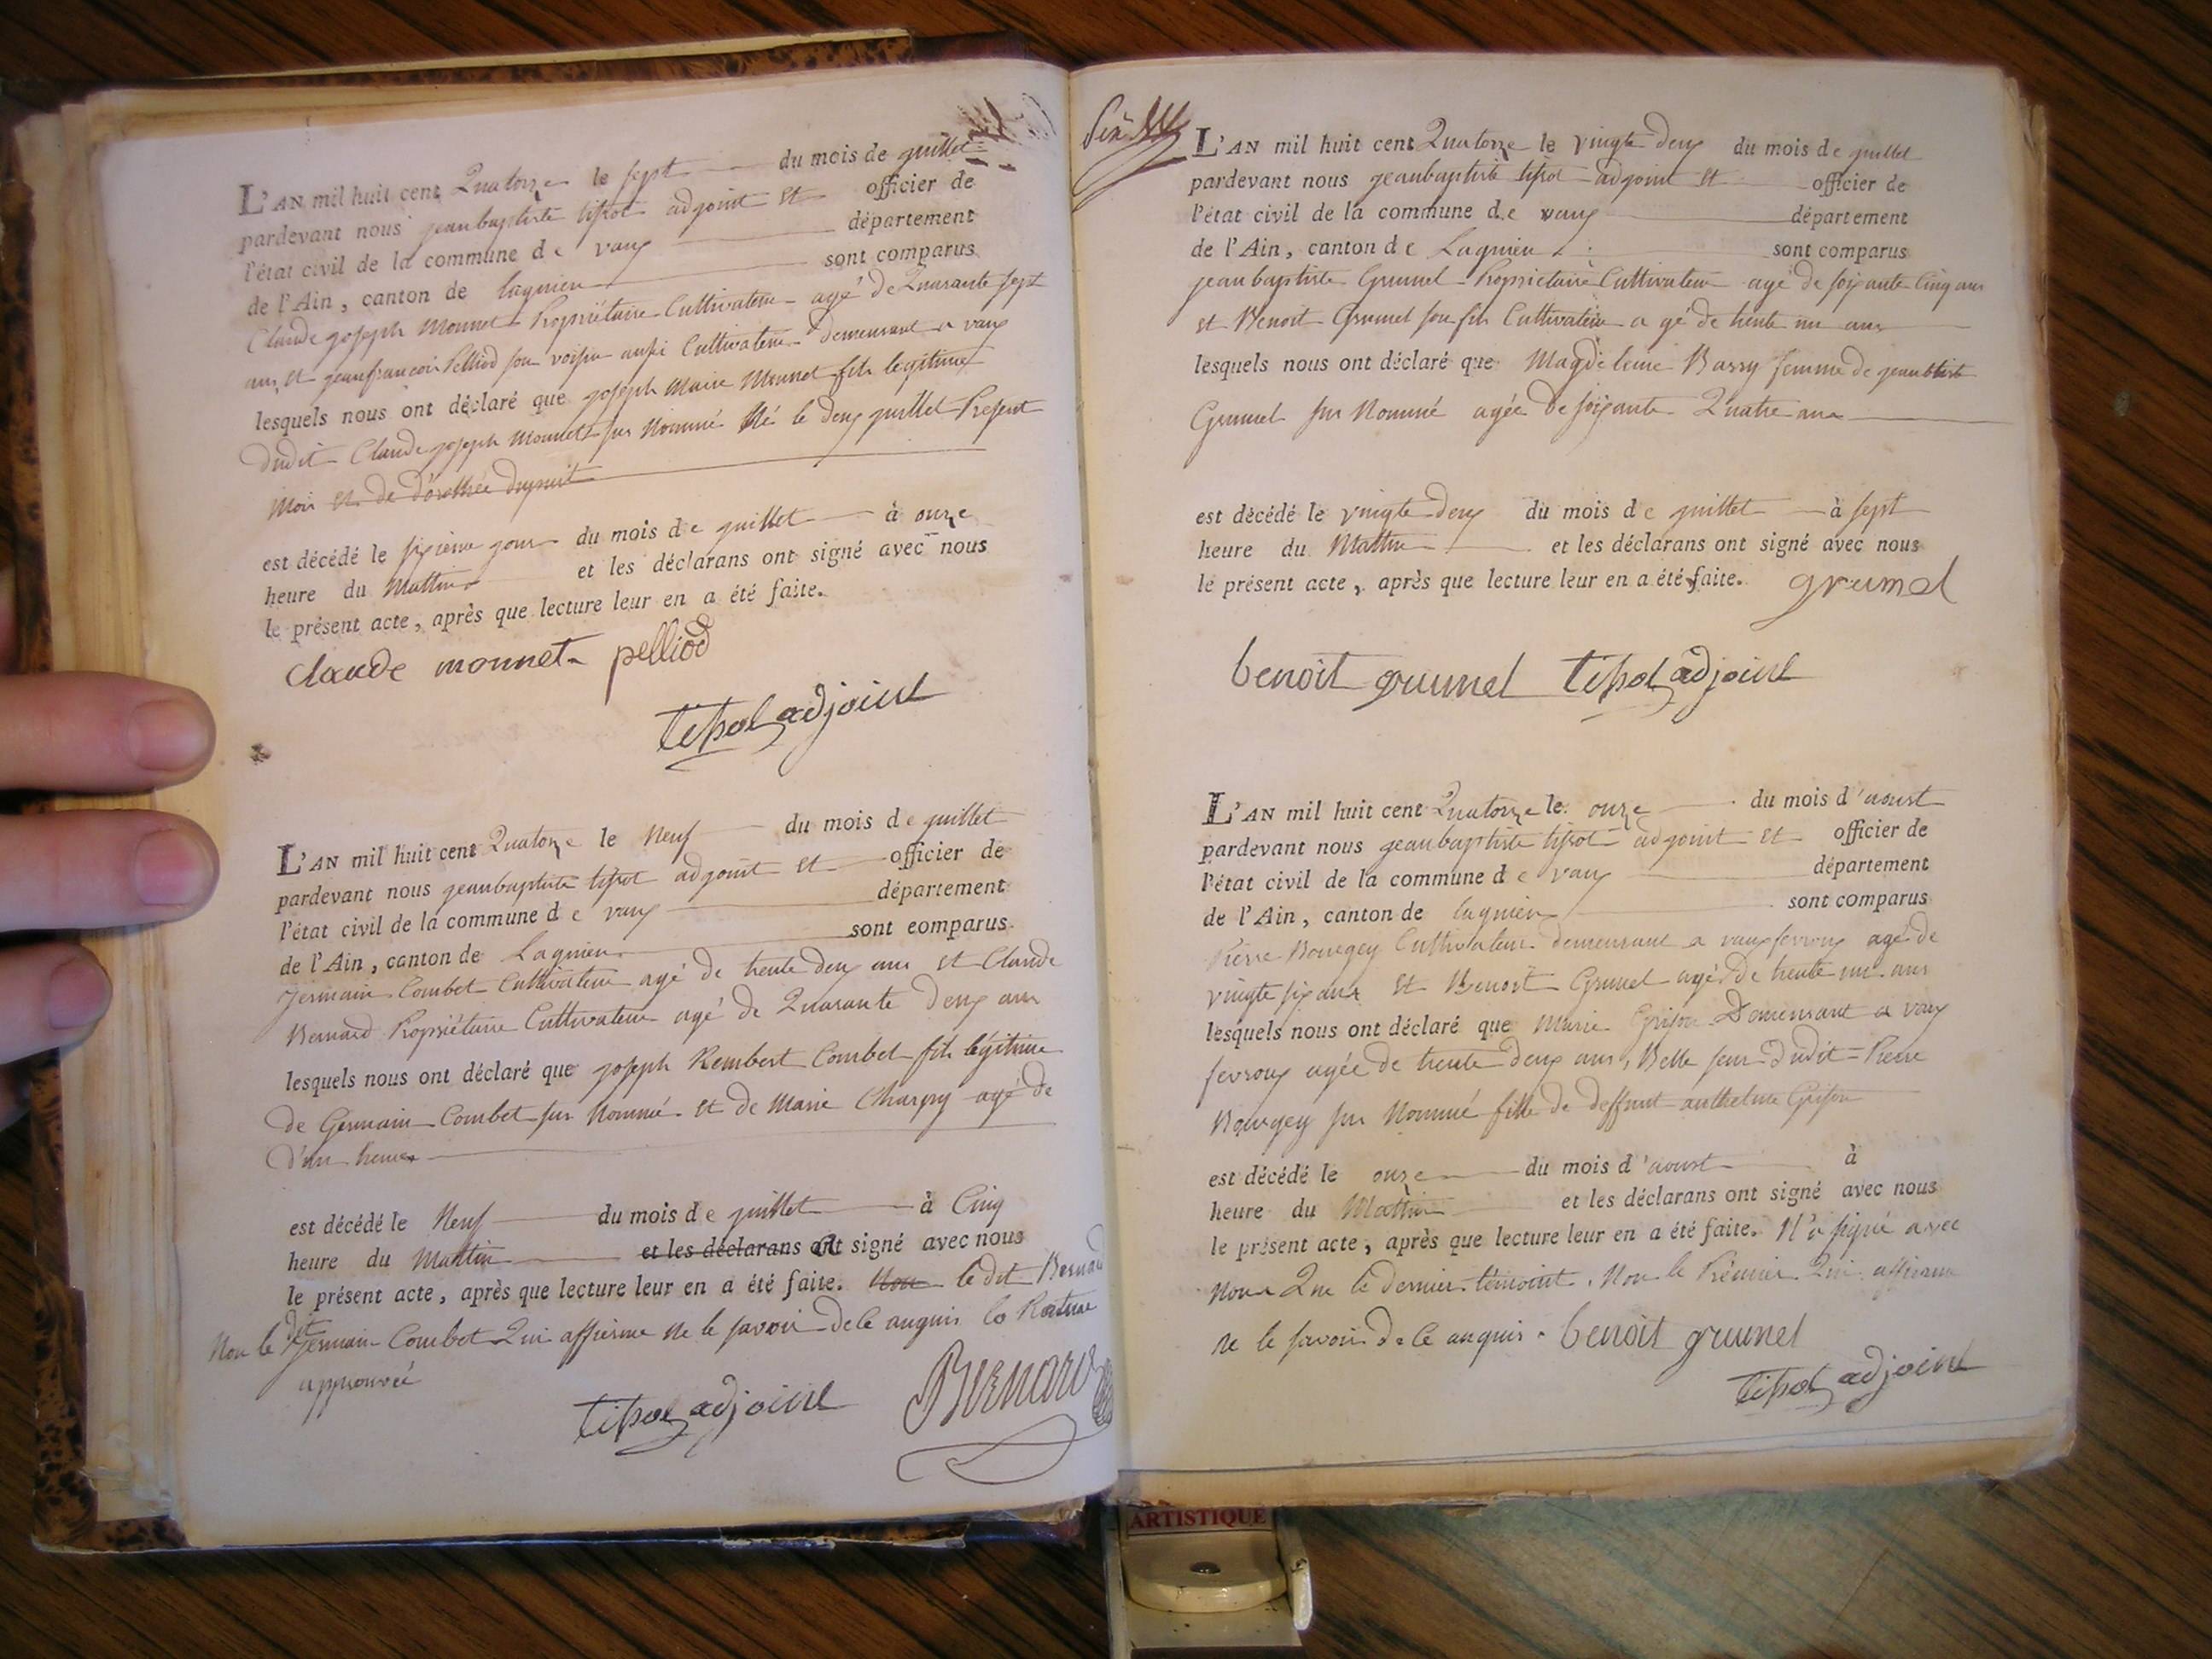 L'AN mil huit cent Quatorze le sept du mois de juillet
pardevant nous jeanbaptiste tissot adjoint et officier de
l'état civil de la commune de vaux département
de l'Ain, canton de lagnieu sont comparus
Claude joseph Monnet Propriétaire Cultivateur agé de Quarante sept
ans et jeanfrancois Pelliod son voisin aussi Cultivateur demeurant a vaux
lesquels nous ont déclaré que joseph Marie Monnet fils legitime
dudit Claude joseph Monnet sus Nommé Né le deux juillet Présent
Mois et de dorothée dupuit
est décédé le sixième jour du mois de juillet à onze
heure du Mattin et les déclarans ont signé avec nous
le présent acte, après que lecture leur en a été faite.
Claude monnet pelliod
tissot adjoint
L'AN mil huit cent Quatorze le Neuf du mois de juillet
pardevant nous jeanbaptiste tissot adjoint et officier de
l'état civil de la commune de vaux département
de l'Ain, canton de Lagnieu sont comparus
Jermain Combet Cultivateur agé de trente deux ans et Claude
Bernard Propriétaire Cultivateur agé de Quarante deux ans
lesquels nous ont déclaré que joseph Rembert Combet fils légitime
de Germain Combet sus Nommé et de Marie Charpy agé de
d'un heure
est décédé le Neuf du mois de juillet à Cinq
heure du Mattin et les déclarans ont signé avec nous
le présent acte, après que lecture leur en a été faite. Non le dit Bernard
Non le dt Jermain Combet Qui affierme ne le savoir de ce anquis la Rature
approuvée
tissot adjoint Bernard
L'AN mil huit cent Quatorze le vingte deux du mois de juillet
pardevant nous jeanbaptiste tissot adjoint et officier de
l'état civil de la commune de vaux département
de l'Ain, canton de Lagnieu sont comparus
jeanbaptiste Grumel Propriétaire Cultivateur agé de soixante Cinq ans
et Benoit Grumel son fils Cultivateur a gé de trente un ans
lesquels nous ont déclaré que Magdeleine Barry femme de jeanbtiste
Grumel sus Nommé agée de soixante Quatre ans
est décédé le vingte deux du mois de juillet à sept
heure du Mattin et les déclarans ont signé avec nous
le présent acte, après que lecture leur en a été faite. grumel
benoit grumel tissot adjoint
L'AN mil huit cent Quatorze le onze du mois d'aoust
pardevant nous jeanbaptiste tissot adjoint et officier de
l'état civil de la commune de vaux département
de l'Ain, canton de lagnieu sont comparus
Pierre Bourgey Cultivateur demeurant a vauxfevroux agé de
vingte six ans et Benoit Grumel agé de trente un ans
lesquels nous ont déclaré que Marie Grison Demeurant a vaux
fevroux agée de trente deux ans, Belle seur dudit Pierre
Bourgey sus Nommé fille de deffunt anthelme Grison
est décédé le onze du mois d'aoust à
heure du Mattin et les déclarans ont signé avec nous
le présent acte, après que lecture leur en a été faite. N'a signé avec
Nous Que le dernier témoint. Non le Prémier Qui affierme
ne le savoir de ce anquis. benoit grumel
tissot adjoint
ARTISTIQUE